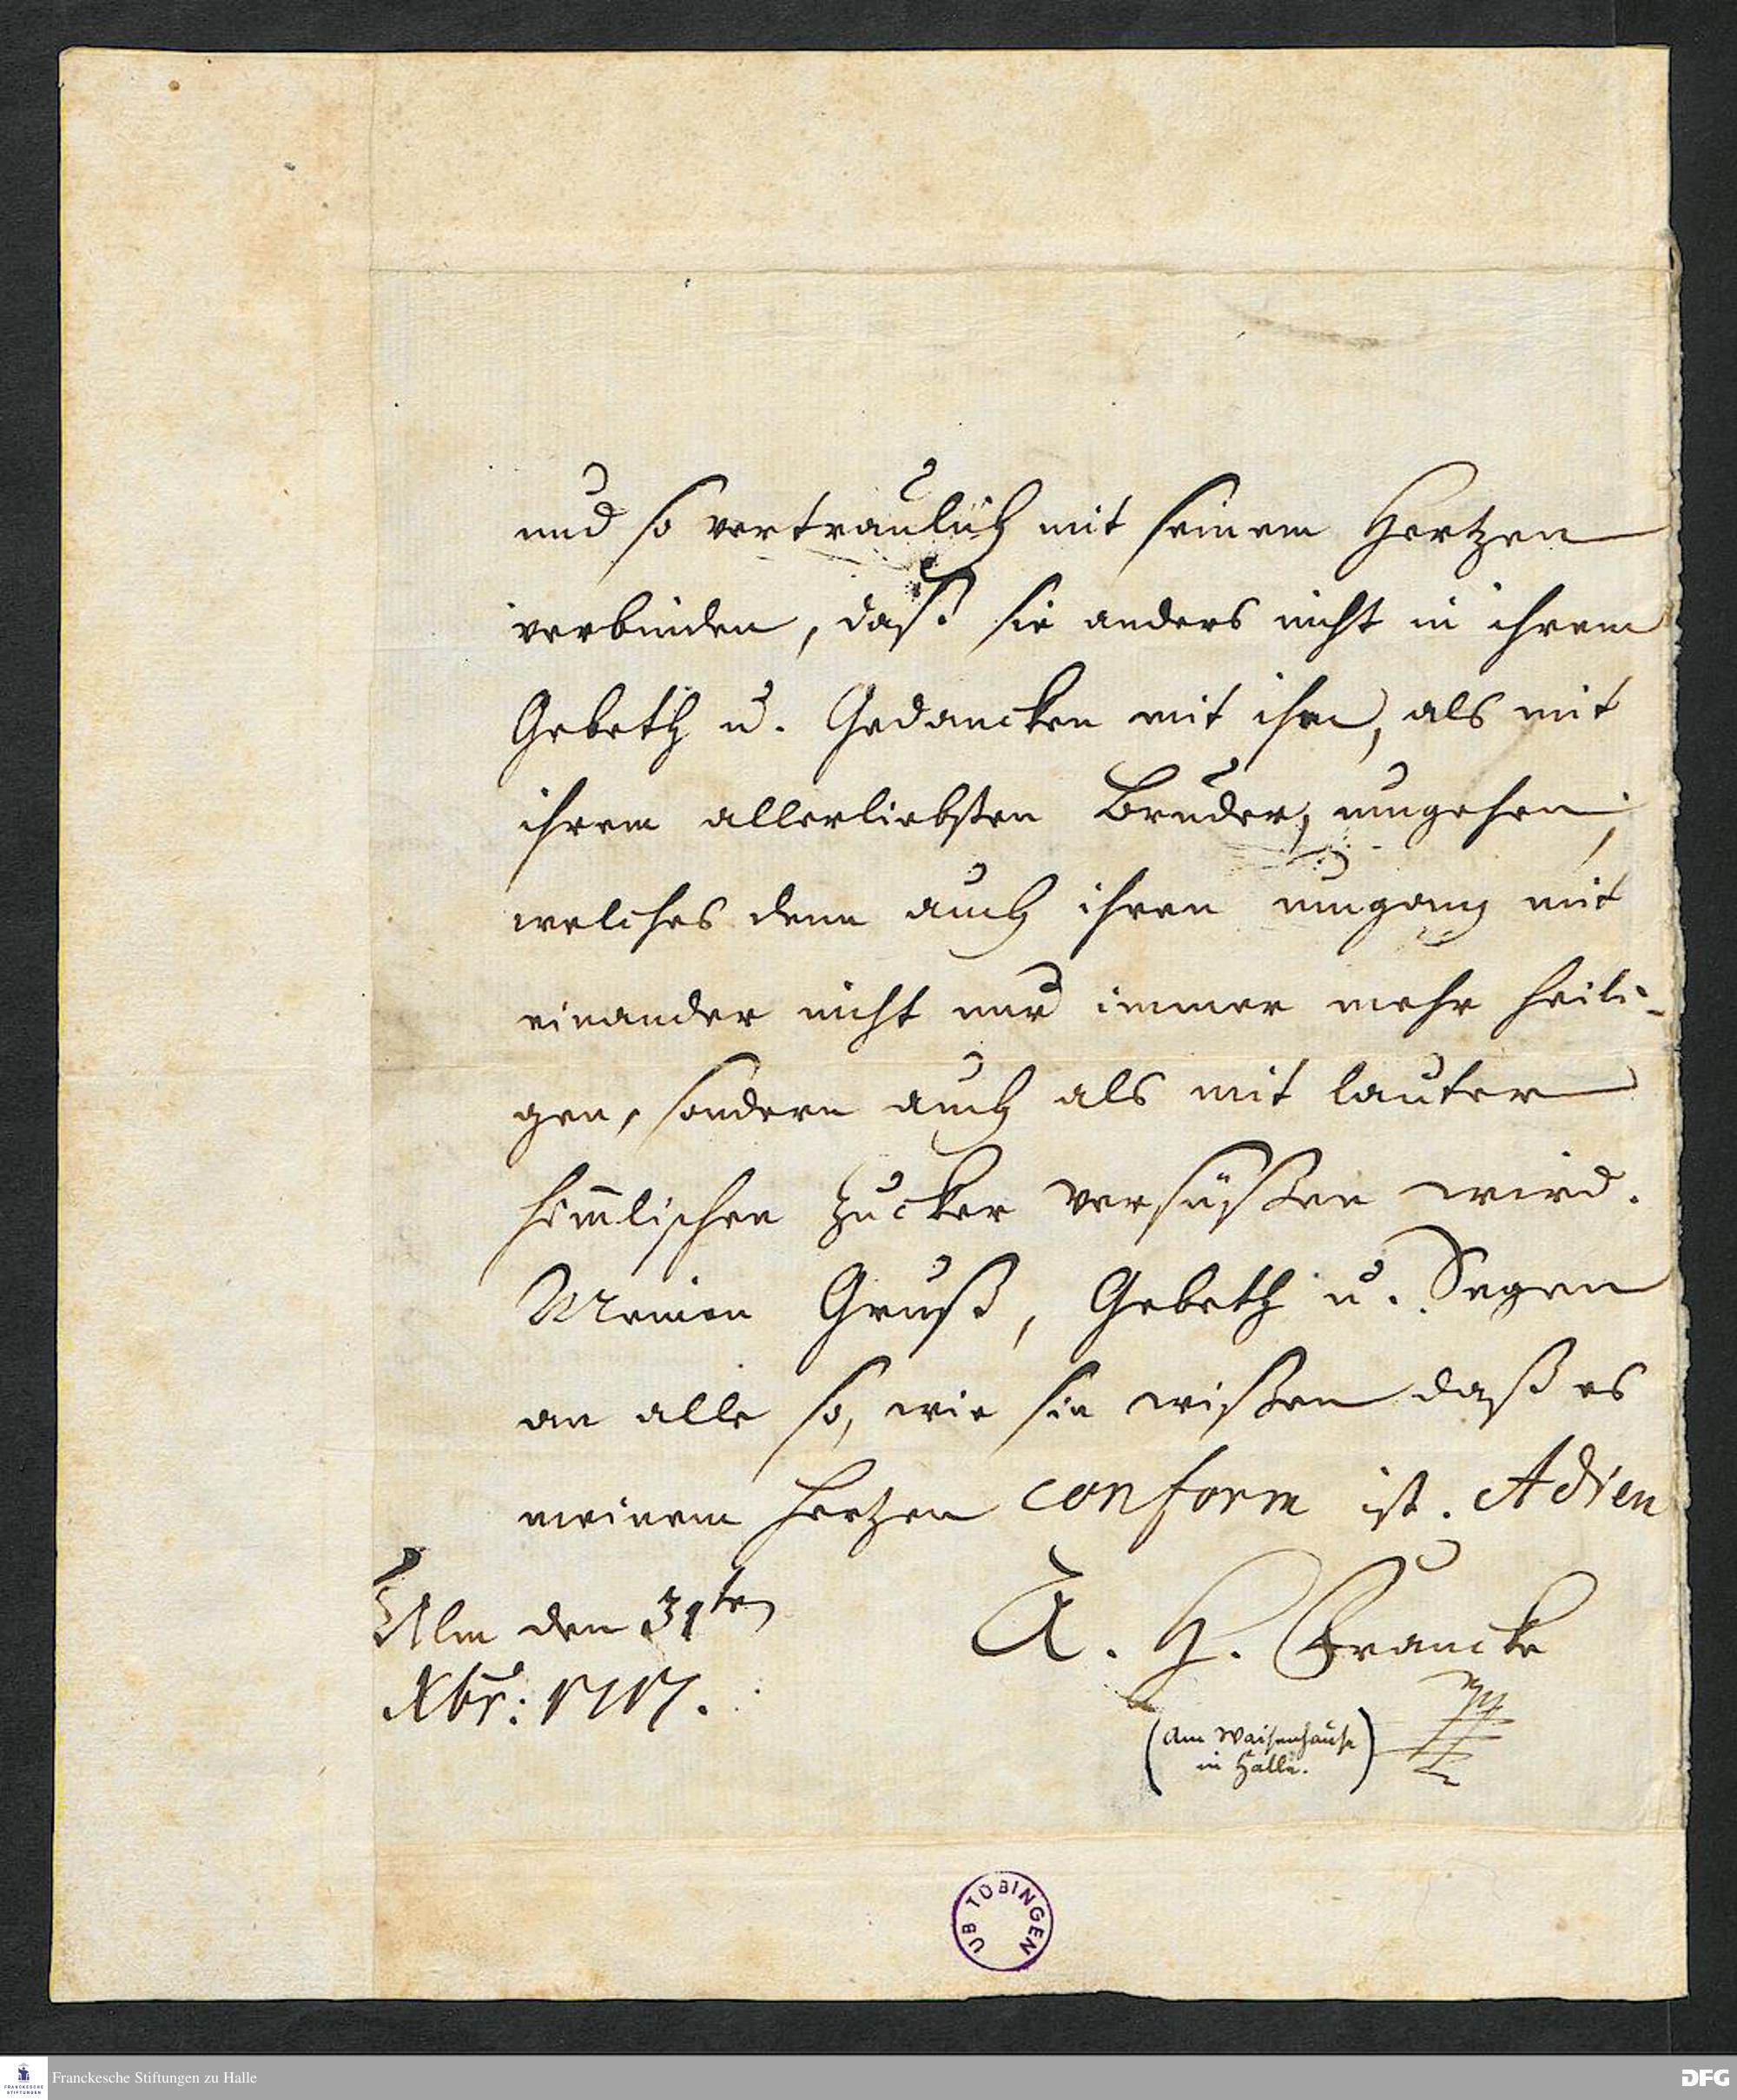 und so vertraulich mit seinem Hertzen
verbinden, daß sie anders nicht in ihrem
Gebeth u. Gedancken mit ihm, als mit
ihrem allerliebsten Bruder, umgehen;
welches denn auch ihren umgang mit
einander nicht nur immer mehr heili-
gen, sondern auch als mit lauter
him̅lischen Zucker versüßen wird.
Meinen Gruß, Gebeth u. Segen
an alle so, wie sie wißen daß es
meinem Hertzen conform ist. Adieu
Ulm den 31ten
Xbr: 1717.
A. H. Francke
(Am Waisenhause
in Halle.)
UB TÜBINGEN
FRANCKESCHE
STIFTUNGEN
Franckesche Stiftungen zu Halle
DFG